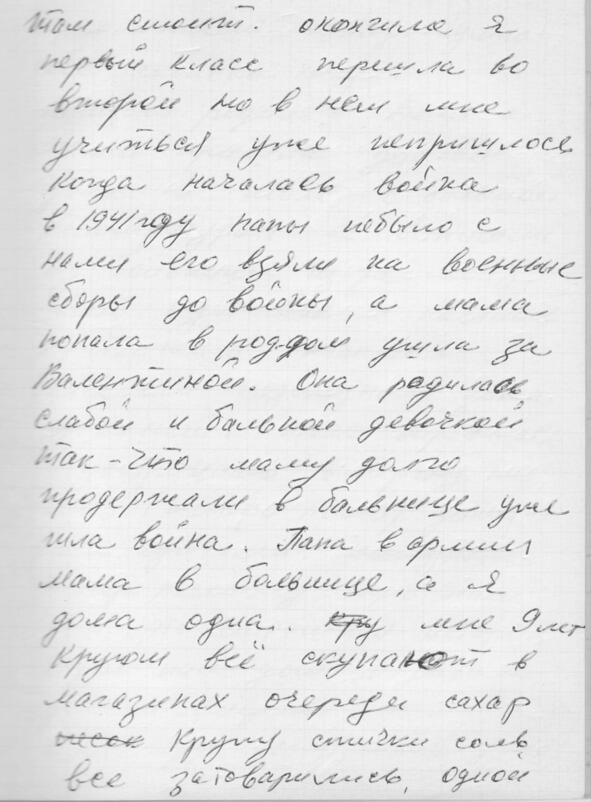 там стоит. окончила я
первый класс перешла во
второй но в нем мне
учиться уже непришлось
когда началась война
в 1941 году папы небыло с
нами его взяли на военные
сборы до войны, а мама
попала в роддом ушла за
Валентиной. Она родилась
слабой и бальной девочкой
так-что маму долго
продержали в бальнице уже
шла война. Папа в армии
мама в больнице, а я
дома одна. мне 9 лет
кругом всё скупают в
магазинах очереди сахар
крупу спички соль
все затоварились, одной